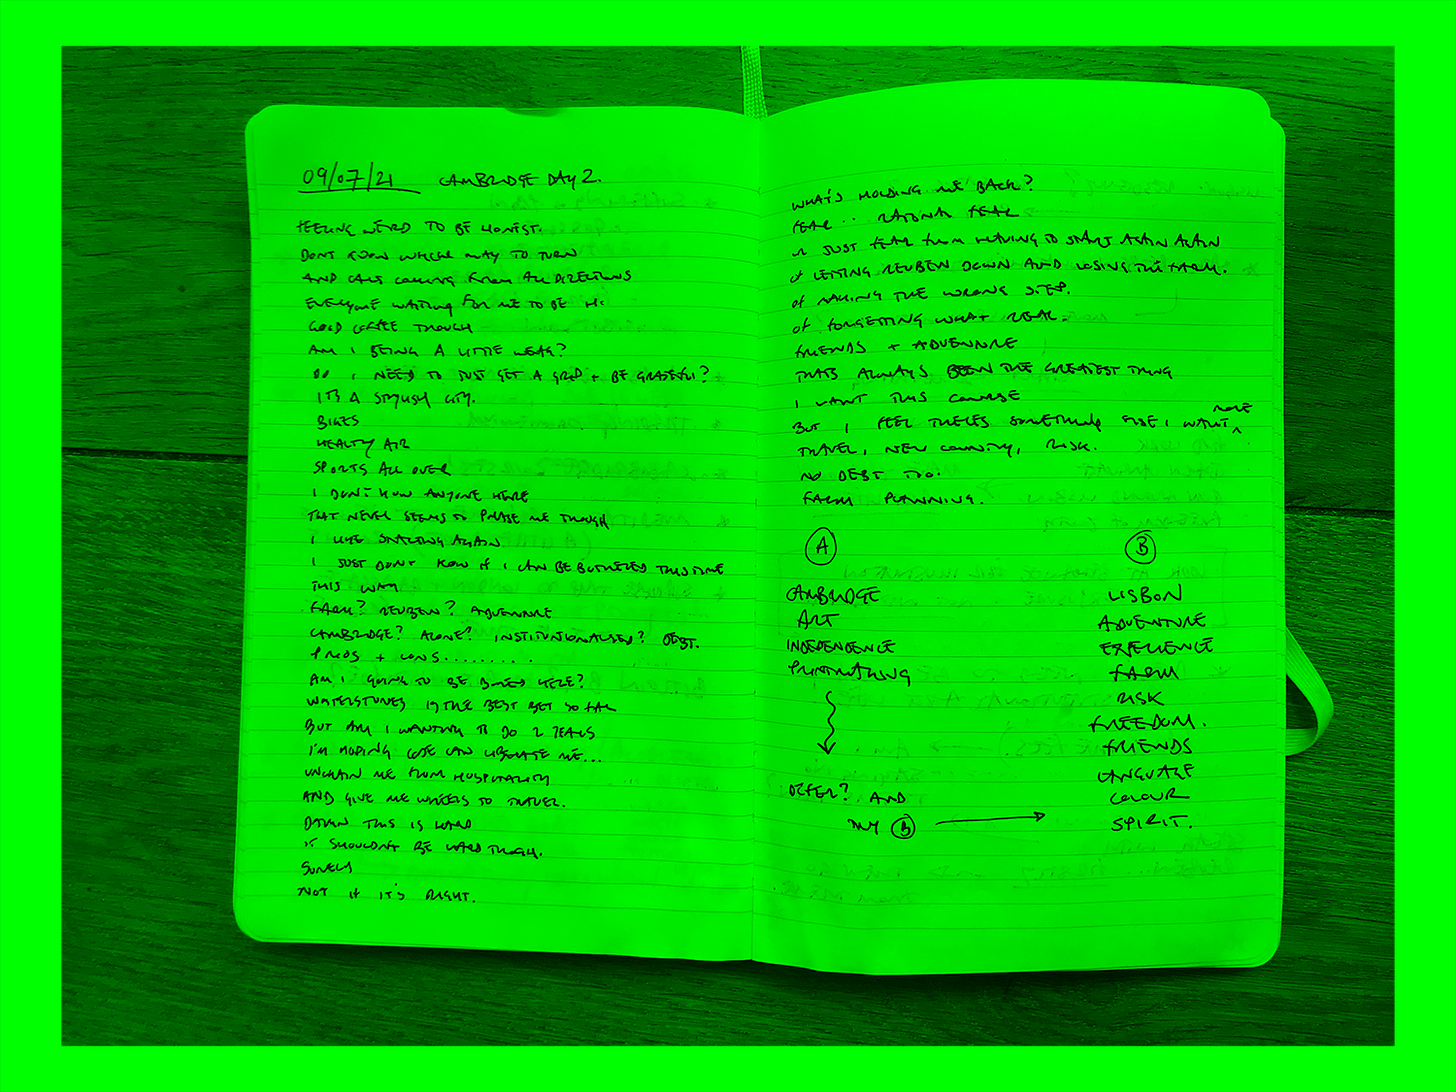 09/07/21 CAMBRIDGE DAY 2.
FEELING WEIRD TO BE HONEST.
DONT KNOW WHICH WAY TO TURN
AND CALLS COMING FROM ALL DIRECTIONS
EVERYONE WAITING FOR ME TO BE
GOOD COFFEE THOUGH
AM I BEING A LITTLE WEAK?
DO I NEED TO JUST GET A GRIP + BE GRATEFUL?
IT'S A STYLISH CITY.
BIKES
HEALTHY AIR
SPORTS ALL OVER
I DON'T KNOW ANYONE HERE
THAT NEVER SEEMS TO PHASE ME THOUGH
I LIKE STARTING AGAIN
I JUST DON'T KNOW IF I CAN BE BOTHERED THIS TIME
THIS WAY
FARM? REUBEN? ADVENTURE
CAMBRIDGE? ALONE? INSTITUTIONALISED? DEBT.
PROS + CONS.........
AM I GOING TO BE BORED HERE?
WATERSTONES IS THE BEST BET SO FAR
BUT AM I WANTING TO DO 2 YEARS
I'M HOPING CODE CAN LIBERATE ME...
UNCHAIN ME FROM HOSPITALITY
AND GIVE ME WHEELS TO TRAVEL.
DAMN THIS IS HARD
IT SHOULDN'T BE HARD THOUGH.
SURELY
NOT IF IT'S RIGHT.
WHAT'S HOLDING ME BACK?
FEAR... RATIONAL FEAR
OR JUST FEAR FROM HAVING TO START AGAIN AGAIN
OF LETTING REUBEN DOWN AND LOSING THE FARM.
OF MAKING THE WRONG STEP.
OF FORGETTING WHAT REAL.
FRIENDS + ADVENTURE
THATS ALWAYS BEEN THE GREATEST THING
I WANT THIS COURSE
BUT I FEEL THERE'S SOMETHING ELSE I WANT MORE
TRAVEL, NEW COUNTRY, RISK.
NO DEBT TOO.
FARM PLANNING.
A
CAMBRIDGE
ART
INDEPENDENCE
PRINTMAKING
DEFER? AND
MY B
B
LISBON
ADVENTURE
EXPERIENCE
FARM
RISK
FREEDOM.
FRIENDS
LANGUAGE
COLOUR
SPIRIT.